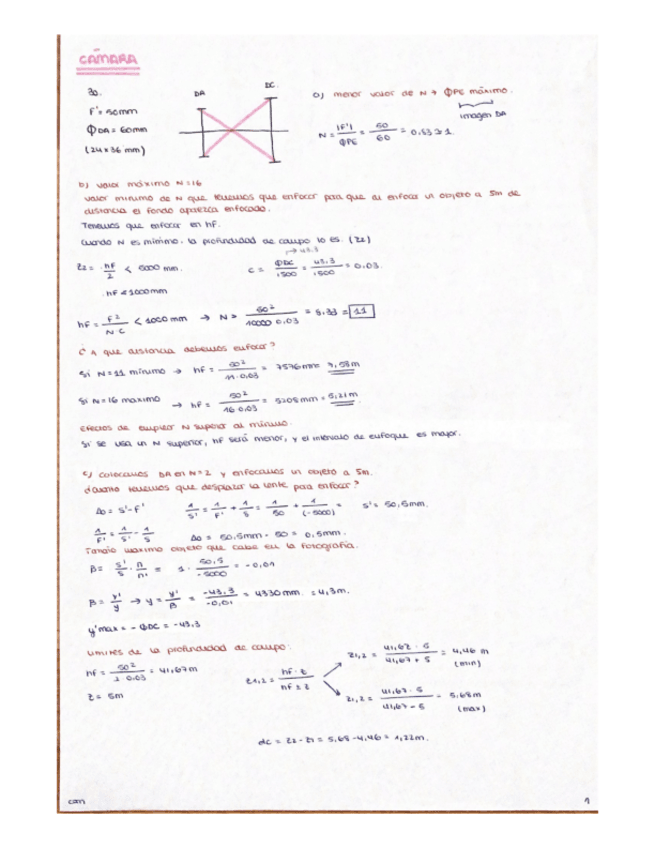 CÁMARA
30.
F' = 50mm
ΦDA = 60mm
(24 x 36 mm)
DA
DC
a) menor valor de N → ΦPE máximo.
imagen DA
N = |F'| / ΦPE = 50 / 60 = 0,83 ≈ 1
b) valor máximo N = 16
valor mínimo de N que tenemos que enfocar para que al enfocar un objeto a 5m de
distancia el fondo aparezca enfocado.
Tenemos que enfocar en hF.
Cuando N es mínimo, la profundidad de campo lo es. (Z2)
Z2 = hF / 2 < 5000 mm.
→ 43.3
C = ΦDC / 1500 = 43.3 / 1500 = 0,03.
hF < 1000mm
hF = F² / N·C < 1000 mm → N > 50² / 10000·0,03 = 8,33 = 11
¿A que distancia debemos enfocar?
Si N=11 mínimo → hF = 50² / 11·0,03 = 7576mm = 7,58m
Si N=16 maximo → hF = 50² / 16·0,03 = 5208mm = 5,21m
Efectos de emplear N superior al mínimo.
Si se usa un N superior, hF será menor, y el intervalo de enfoque es major.
c) colocamos DA en N=2 y enfocamos un objeto a 5m.
¿Cuanto tenemos que desplazar la lente para enfocar?
Δo = s' - F'
1/s' = 1/F' + 1/s = 1/50 + 1/(-5000) =
s' = 50,5mm.
1/F' = 1/s' - 1/s
Δo = 50,5mm - 50 = 0,5mm.
Tamaño maximo objeto que cabe en la fotografía.
β = s'/s · n/n' = 1 · 50,5 / -5000 = -0,01
β = y'/y → y = y'/β = -43,3 / -0,01 = 4330mm = 4,3m.
y'max = - ΦDC = -43,3
Límites de la profundidad de campo:
hF = 50² / 2·0.03 = 41,67m
Z = 5m
Z1,2 = hF · Z / hF ± Z
Z1,2 = 41,67 · 5 / 41,67 + 5 = 4,46 m
(min)
Z1,2 = 41,67 · 5 / 41,67 - 5 = 5,68m
(max)
dc = Z2 - Z1 = 5,68 - 4,46 = 1,22m.
can
1